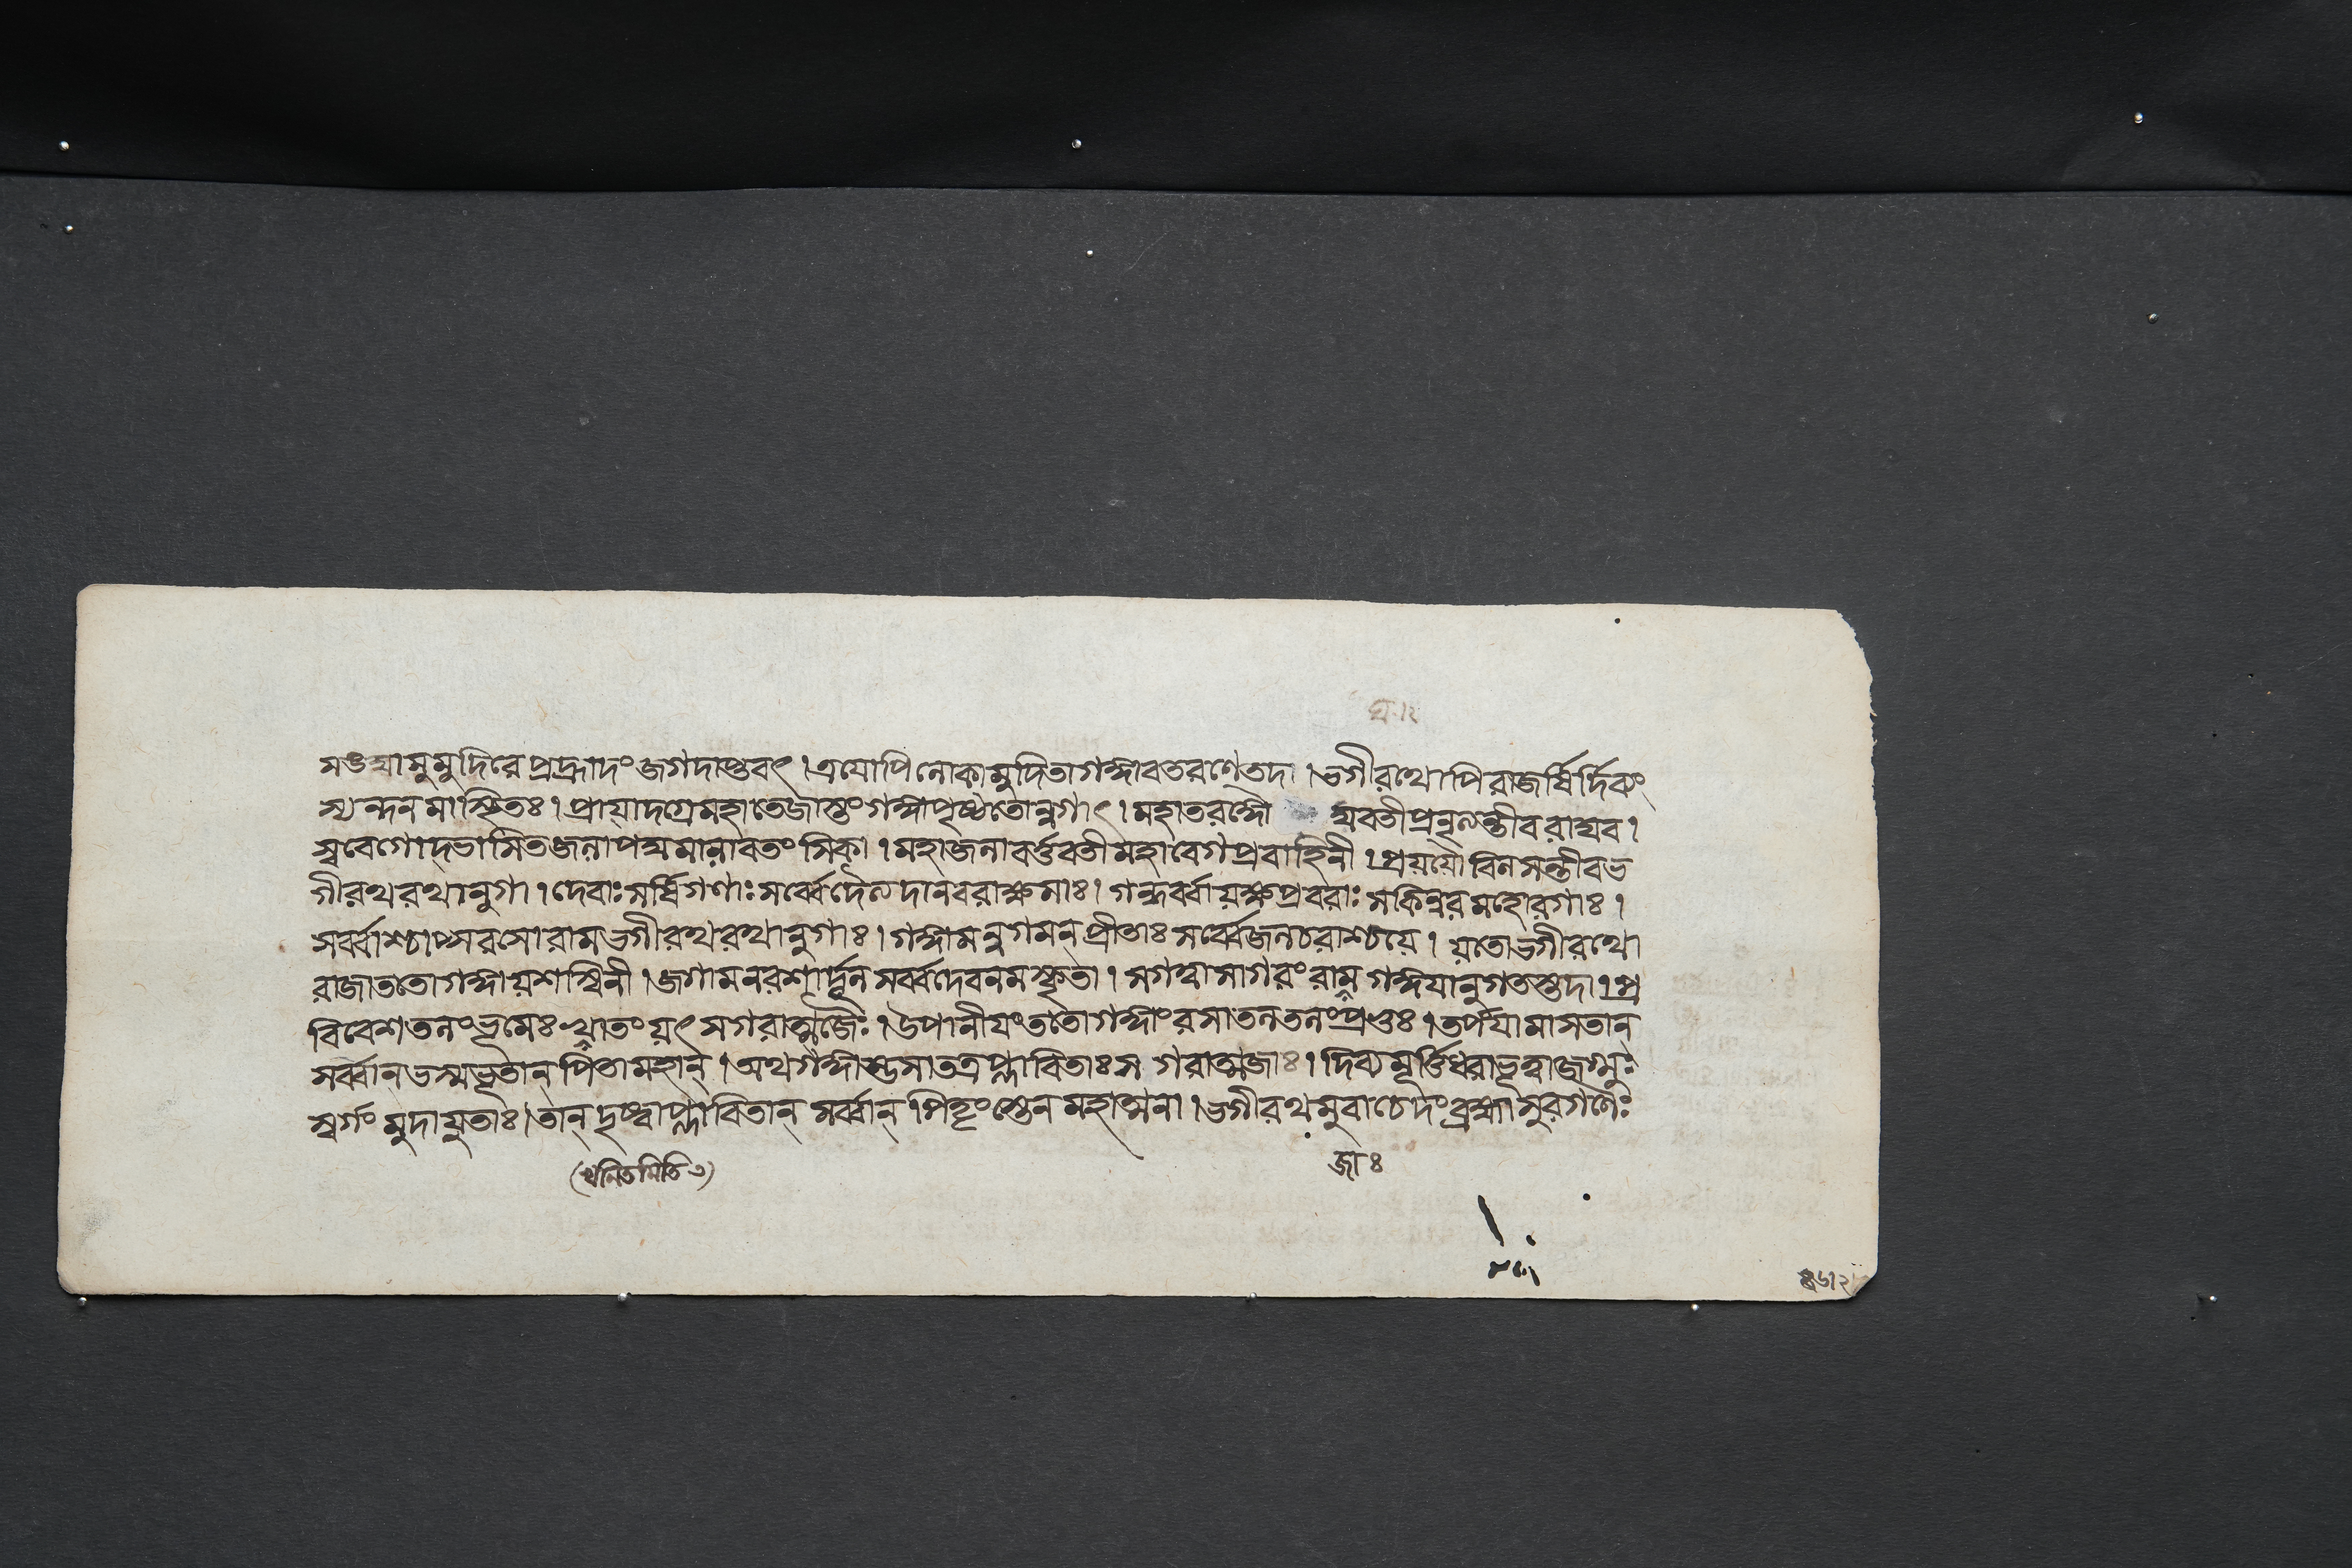 ঘ।২
সঙ্ঘা মুমুদিরে প্রহ্লাদং জগদাপ্নুবৎ । ত্রয়োপি লোকা মুদিতা গঙ্গাবতরণে তদা । ভগীরথোপি রাজর্ষির্দিব্যং
স্যন্দনমাস্থিতঃ । প্রায়াদগ্রে মহাতেজাস্তং গঙ্গা পৃষ্ঠতোন্বগাৎ । মহাতরঙ্গৌ ঘবতী প্রনৃত্যন্তীব রাঘব ।
স্ববেগোদ্ভাসিতজলাপদ্মমালাবতংসিকা । মহাজলাবর্ত্তবতী মহাবেগপ্রবাহিনী । প্রযযৌ বিলসন্তীব ভ
গীরথরথানুগা । দেবাঃ সর্ষিগণাঃ সর্ব্বে দৈত্যদানবরাক্ষসাঃ । গন্ধর্ব্বা যক্ষপ্রবরাঃ সকিন্নরমহোরগাঃ ।
সর্ব্বাশ্চাপ্সরসো রাম ভগীরথরথানুগাঃ । গঙ্গামনুগমন্ প্রীতাঃ সর্ব্বে জলচরাশ্চ যে । যতো ভগীরথো
রাজা ততো গঙ্গা যশস্বিনী । জগাম নরশার্দ্দূল সর্ব্বদেবনমস্কৃতা । সগত্বা সাগরং রাম গঙ্গয়ানুগতস্তদা । প্র
বিবেশ তলং ভূমেঃ খাতং যৎ সগরাত্মজৈঃ । উপানীয় ততো গঙ্গাং রসাতলতলং প্রভুঃ । তর্পয়ামাস তান্
সর্ব্বান্ ভস্মভূতান্ পিতামহান্ । অথ গঙ্গাম্ভসা তত্র প্লাবিতাঃ সগরাত্মজাঃ । দিব্যমূর্ত্তিধরা ভূত্বা জগ্মুঃ
স্বর্গং মুদা যুতাঃ । তান্ দৃষ্ট্বা প্লাবিতান্ সর্ব্বান্ পিতৄংস্তেন মহাত্মনা । ভগীরথমুবাচেদং ব্রহ্মা সুরগণৈঃ
(খনিতমিতি ৩)
জাঃ
৪৬।২